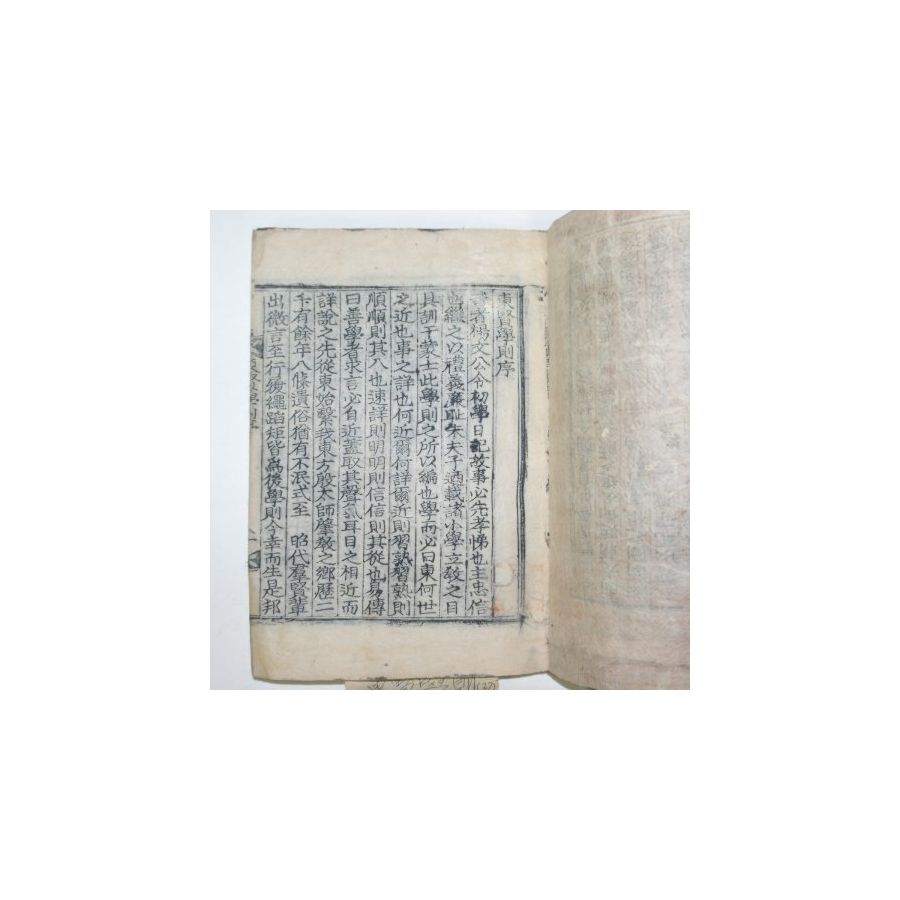 東賢學則序
昔者楊文公令初學日記故事必先孝悌也主忠信
而繼之以禮義廉恥朱夫子迺載諸小學立敎之目
其訓于蒙士此學則之所以編也學而必曰東何世
之近也事之詳也何近爾何詳爾近則習熟習熟則
順順則其入也速詳則明明則信信則其從也易傳
曰善學者求言必自近蓋取其聲氣耳目之相近而
詳說之先從東始繫我東方殷太師肇敎之鄕歷二
千有餘年八條遺俗猶有不泯式至 昭代羣賢輩
出微言至行後繩蹈矩皆爲後學則今幸而生是邦